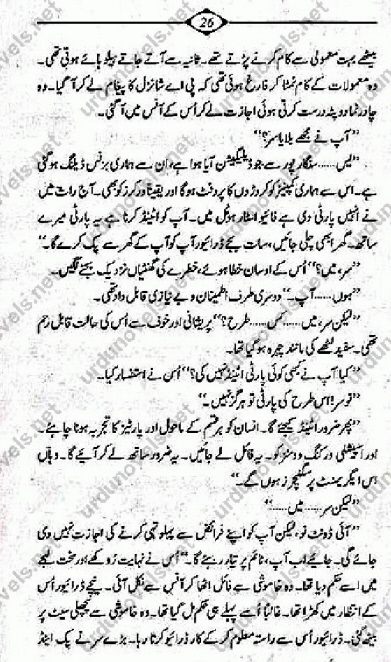 26
بیٹھے بہت معمولی سے کام کرنے پڑتے تھے۔ ثانیہ سے آتے جاتے ہیلو ہائے ہوتی تھی۔
وہ معمولات کے کام نمٹا کر فارغ ہوئی تھی کہ پی اے شانزل کا پیغام لے کر آ گیا۔ وہ
چادر نما دوپٹہ درست کرتی ہوئی اجازت لے کر اُس کے آفس میں آ گئی۔
”آپ نے مجھے بلایا سر؟“
”یس...... سنگاپور سے جو ڈیلیگیشن آیا ہوا ہے، ان سے ہماری بزنس ڈیلنگ ہو گئی
ہے۔ اس سے ہماری کمپنیز کو کروڑوں کا پرافٹ ہو گا اور یقیناً ورکرز کو بھی۔ آج رات میں
نے انہیں پارٹی دی ہے فائیو اسٹار ہوٹل میں۔ آپ کو اٹینڈ کرنا ہے یہ پارٹی میرے
ساتھ۔ گھر ابھی چلی جائیں، سات بجے ڈرائیور آپ کو آپ کے گھر سے پک کرے گا۔“
”سر، میں؟“ اُس کے اوسان خطا ہوئے، خطرے کی گھنٹیاں نزدیک بجنے لگیں۔
”ہوں...... آپ۔“ دوسری طرف اطمینان و بے نیازی قابل داد تھی۔
”لیکن سر، میں...... کس...... طرح؟“ پریشانی اور خوف سے اُس کی حالت قابل رحم
تھی۔ سفید لٹھے کی مانند چہرہ ہو گیا تھا۔
”کیا آپ نے کبھی کوئی پارٹی اٹینڈ نہیں کی؟“ اُس نے استفسار کیا۔
”نو سر! اس طرح کی پارٹی تو ہرگز نہیں۔“
”پھر ضرور اٹینڈ کیجئے گا۔ انسان کو ہر قسم کے ماحول اور پارٹیز کا تجربہ ہونا چاہئے۔
اور اسپیشلی ورکنگ ویمنز کو۔ یہ فائل لے جائیں۔ یہ ضرور ساتھ لے کر آئیے گا۔ وہاں
اس ایگریمنٹ پر سگنیچرز ہوں گے۔“
”لیکن سر...... میں......“
”آئی ڈونٹ نو، لیکن آپ کو اپنے فرائض سے پہلو تہی کرنے کی اجازت نہیں دی
جائے گی۔ جائیے اب آپ، ٹائم پر تیار رہئے گا۔“ اُس نے نہایت روکھے اور سخت لہجے
میں اسے حکم دیا تھا۔ وہ خاموشی سے فائل اٹھا کر آفس سے نکل آئی۔ نیچے ڈرائیور اُس
کے انتظار میں کھڑا تھا۔ غالباً اُسے پہلے ہی حکم مل گیا تھا۔ وہ خاموشی سے پچھلی سیٹ پر
بیٹھ گئی۔ ڈرائیور اُس سے راستہ معلوم کر کے کار ڈرائیو کرتا رہا۔ بڑے سر نے پک اینڈ
urdunovels.net